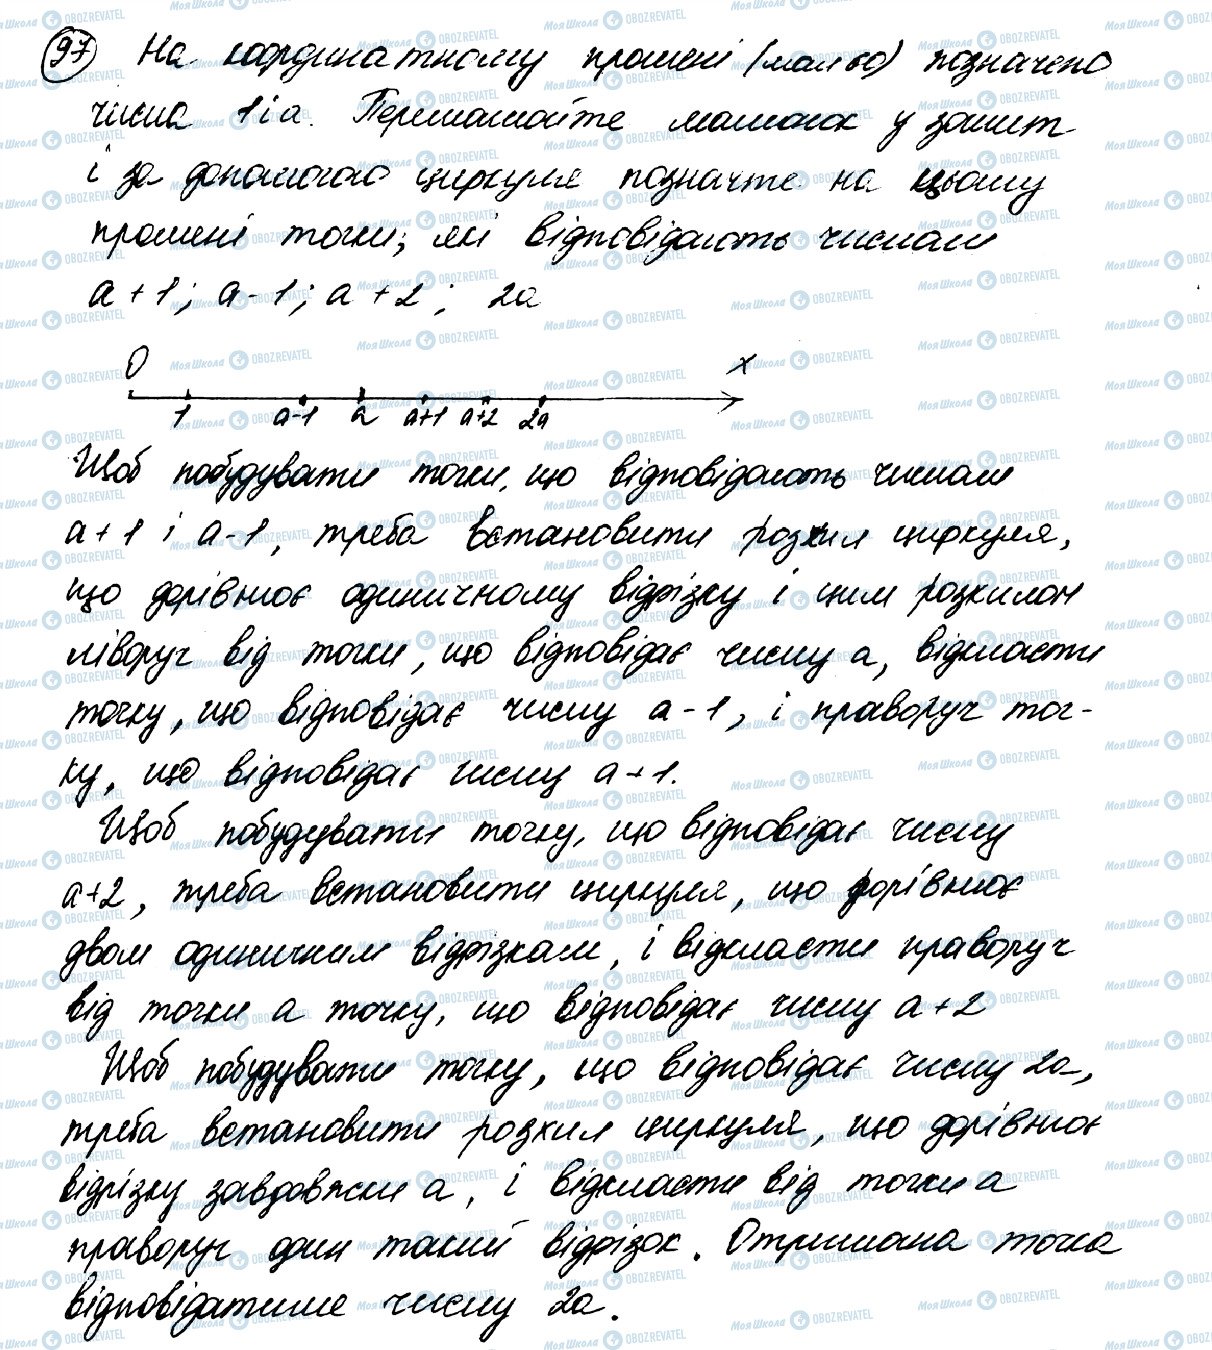 97 На координатному промені (мал 60) позначено
числа 1 і а. Перемалюйте малюнок у зошит
і за допомогою циркуля позначте на цьому
промені точки, які відповідають числам
а + 1; а - 1; а + 2; 2а
0 x
1 а-1 а а+1 а+2 2а
Щоб побудувати точки, що відповідають числам
а + 1 і а - 1, треба встановити розхил циркуля,
що дорівнює одиничному відрізку і цим розхилом
ліворуч від точки, що відповідає числу а, відкласти
точку, що відповідає числу а - 1, і праворуч точ-
ку, що відповідає числу а + 1.
Щоб побудувати точку, що відповідає числу
а+2, треба встановити циркуля, що дорівнює
двом одиничним відрізкам, і відкласти праворуч
від точки а точку, що відповідає числу а + 2
Щоб побудувати точку, що відповідає числу 2а,
треба встановити розхил циркуля, що дорівнює
відрізку завдовжки а, і відкласти від точки а
праворуч один такий відрізок. Отримана точка
відповідатиме числу 2а.
МояШкола OBOZREVATEL